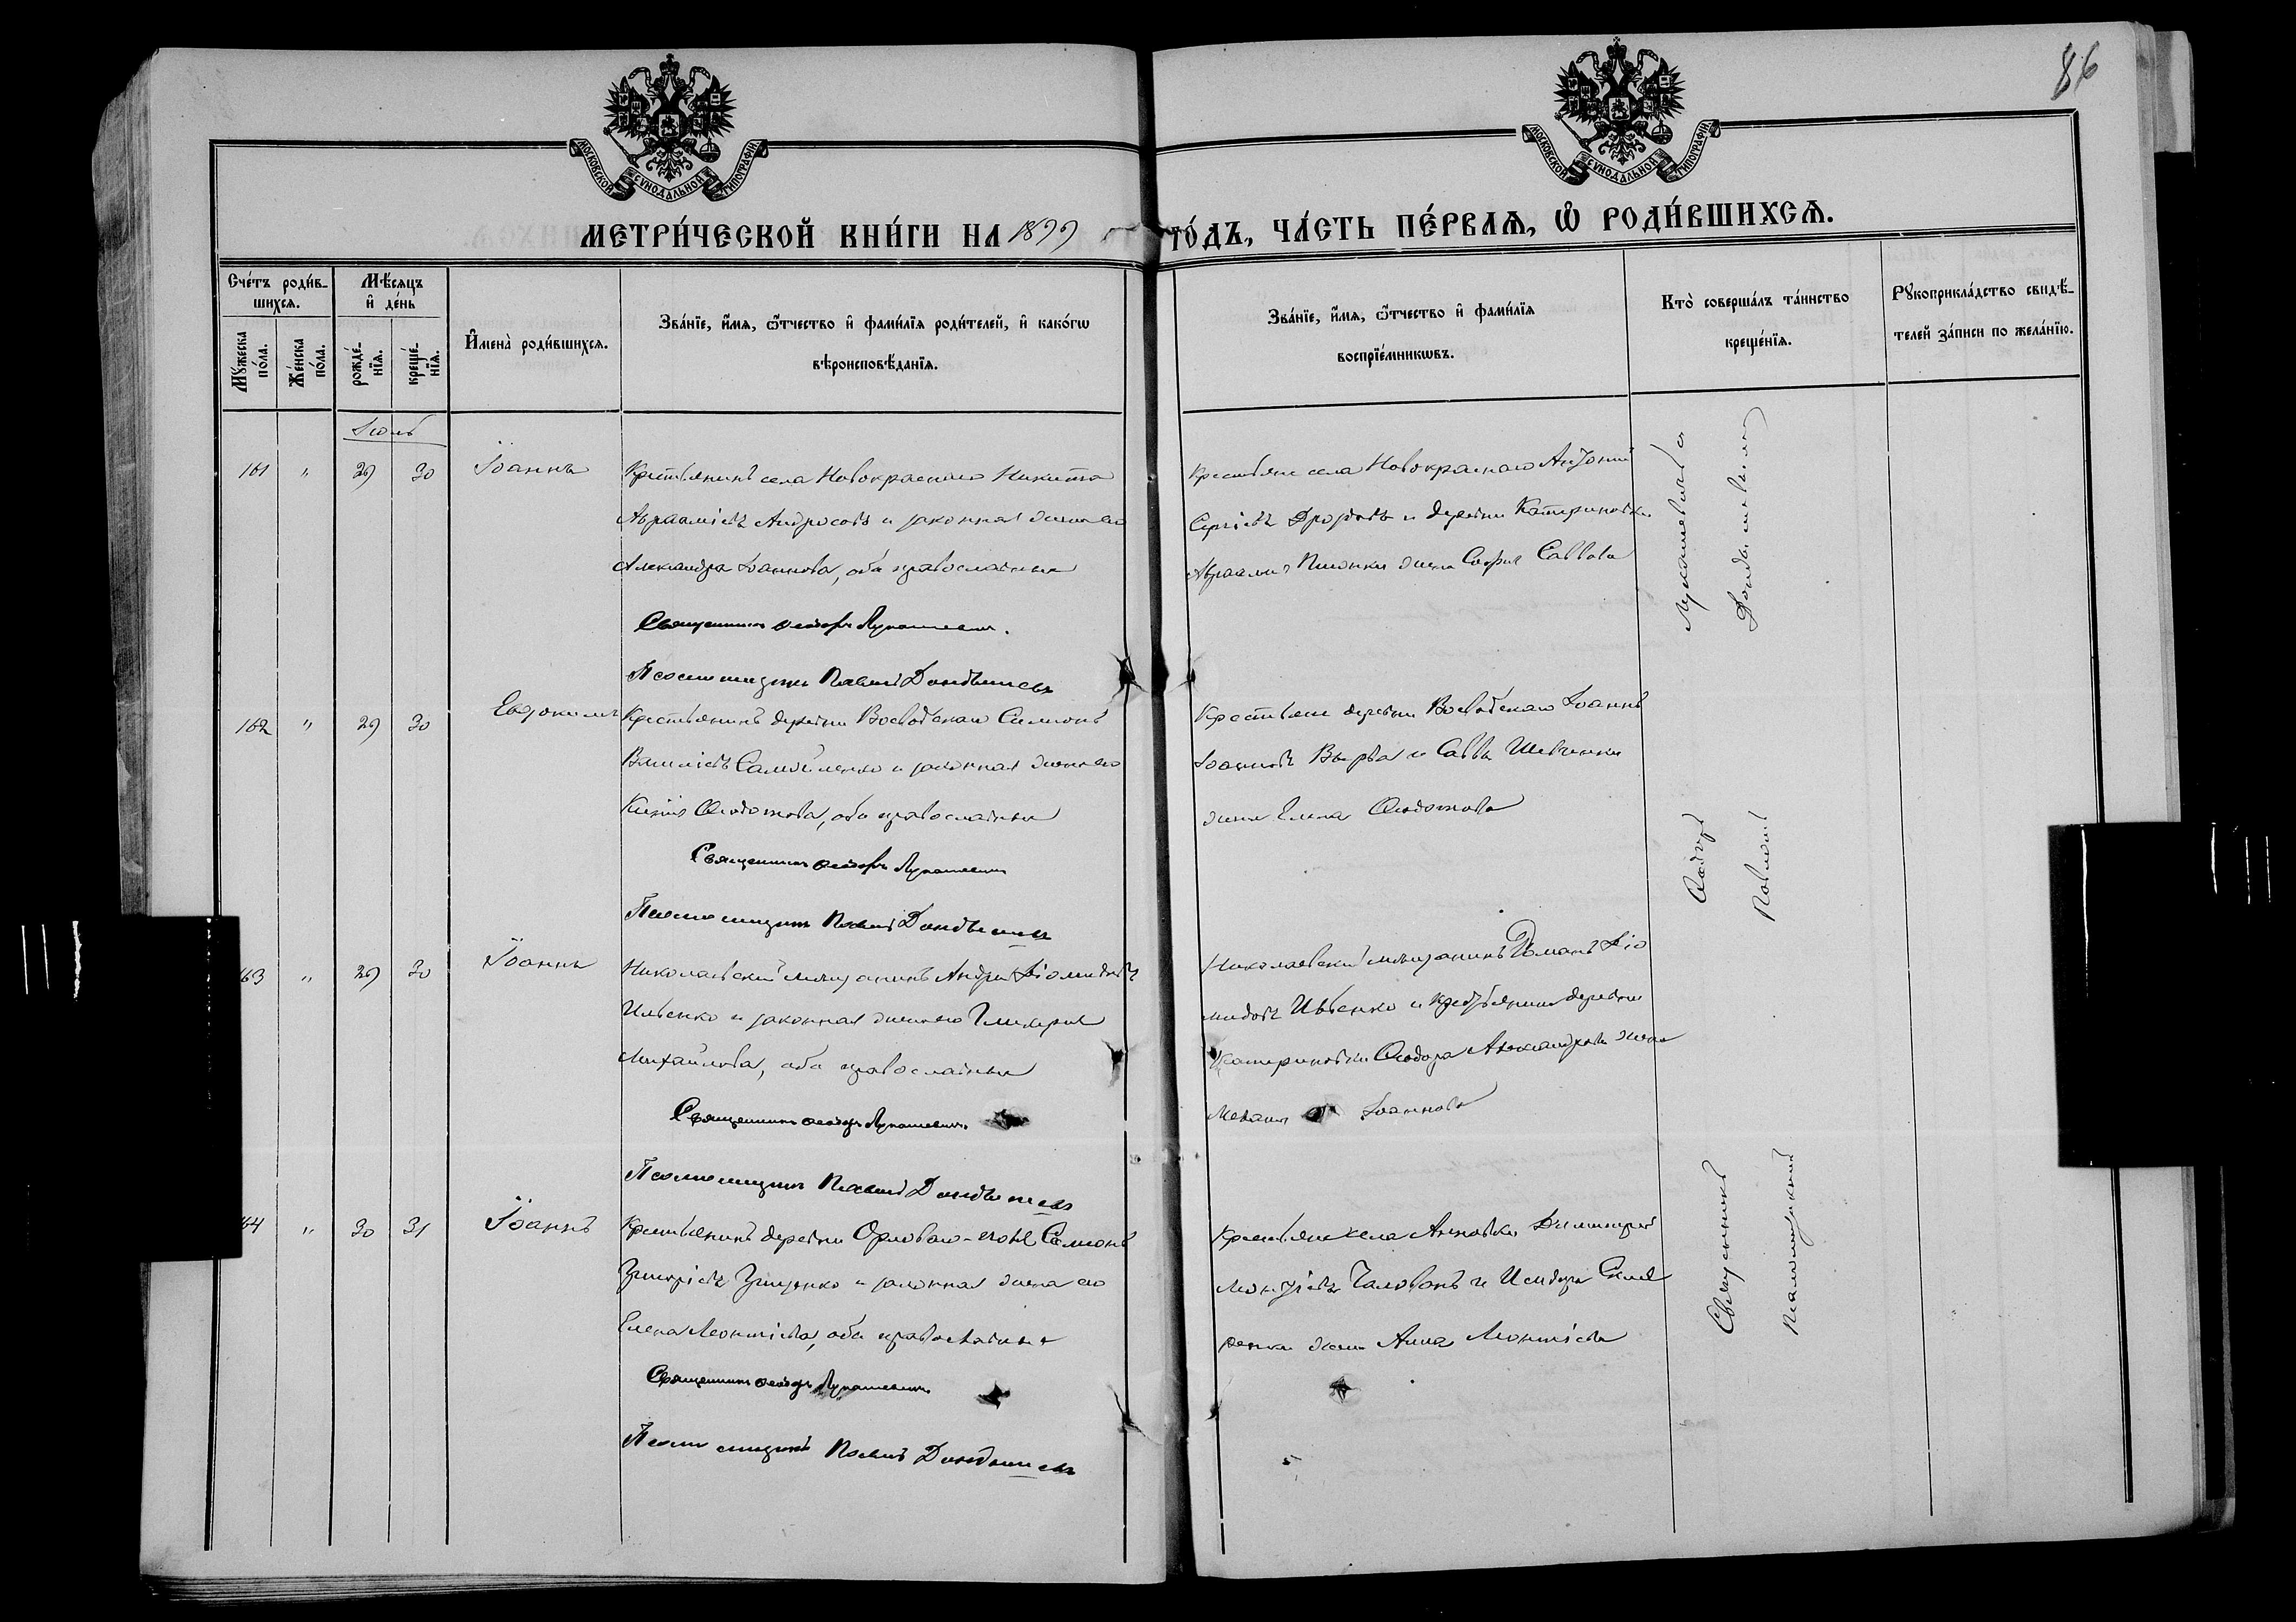 86
МОСКОВСКОЙ СѴНОДАЛЬНОЙ ТИПОГРАФІИ
МОСКОВСКОЙ СѴНОДАЛЬНОЙ ТИПОГРАФІИ
МЕТРИ́ЧЕСКОЙ КНИ́ГИ НА 1899 ГО́ДЪ, ЧА́СТЬ ПЕ́РВАѦ, Ѡ҆ РОДИ́ВШИХСѦ.
Сче́тъ роди́вшихсѧ.
Мꙋ́жеска по́ла.
Же́нска по́ла.
Мѣ́сѧцъ и҆ де́нь
рожде́нїѧ.
креще́нїѧ.
И҆мена̀ роди́вшихсѧ.
Зва́нїе, и҆́мѧ, ѻ҆́тчество и҆ фами́лїѧ роди́телей, и҆ како́гѡ
вѣроисповѣ́данїѧ.
Зва́нїе, и҆́мѧ, ѻ҆́тчество и҆ фами́лїѧ
воспрїе́мникѡвъ.
Кто̀ соверша́лъ та́инство
креще́нїѧ.
Рꙋкоприкла́дство свидѣ́-
телей за́писи по жела́нїю.
161 " 29 30 Іоаннъ
Крестьянинъ села Новокраснаго Никита
Авраамієвъ Андросовъ и законная жена его
Александра Іоаннова, оба православные
Священникъ Ѳеодоръ Лукашевичъ.
Псаломщикъ Павелъ
Крестьяне села Новокраснаго Антоній
Сергіевъ Дроздовъ и деревни Катериновки
жена Софія Саввова
162 " 29 30 Евдокимъ
Крестьянинъ деревни Воеводскаго Симеонъ
Василіевъ Самойленко и законная жена его
Ксенія Ѳеодотова, оба православные
Священникъ Ѳеодоръ Лукашевичъ
Псаломщикъ Павелъ
Крестьяне деревни Воеводскаго Іоаннъ
Іоанновъ и Саввы Шевченка
жена Елена Ѳеодотова
163 " 29 30 Іоаннъ
Николаевскій мѣщанинъ Андрей Діомидовъ
Ивженко и законная жена его Гликерія
Михайлова, оба православные
Священникъ Ѳеодоръ Лукашевичъ.
Псаломщикъ Павелъ
Николаевскій мѣщанинъ Романъ Діо
мидовъ Ивженко и крестьянина деревни
Катериновки Ѳеодора Александрова жена
Меланія Іоаннова
164 " 30 31 Іоаннъ
Крестьянинъ деревни Симеонъ
Григоріевъ Грищенко и законная жена его
Елена Леонтіева, оба православные
Священникъ Ѳеодоръ Лукашевичъ.
Псаломщикъ Павелъ
Крестьяне села Анновки Димитрій
Леонтіевъ Чалованъ и Исидора
жена Анна Леонтіева
Священникъ Ѳеодоръ Лукашевичъ съ
Псаломщикомъ Павломъ